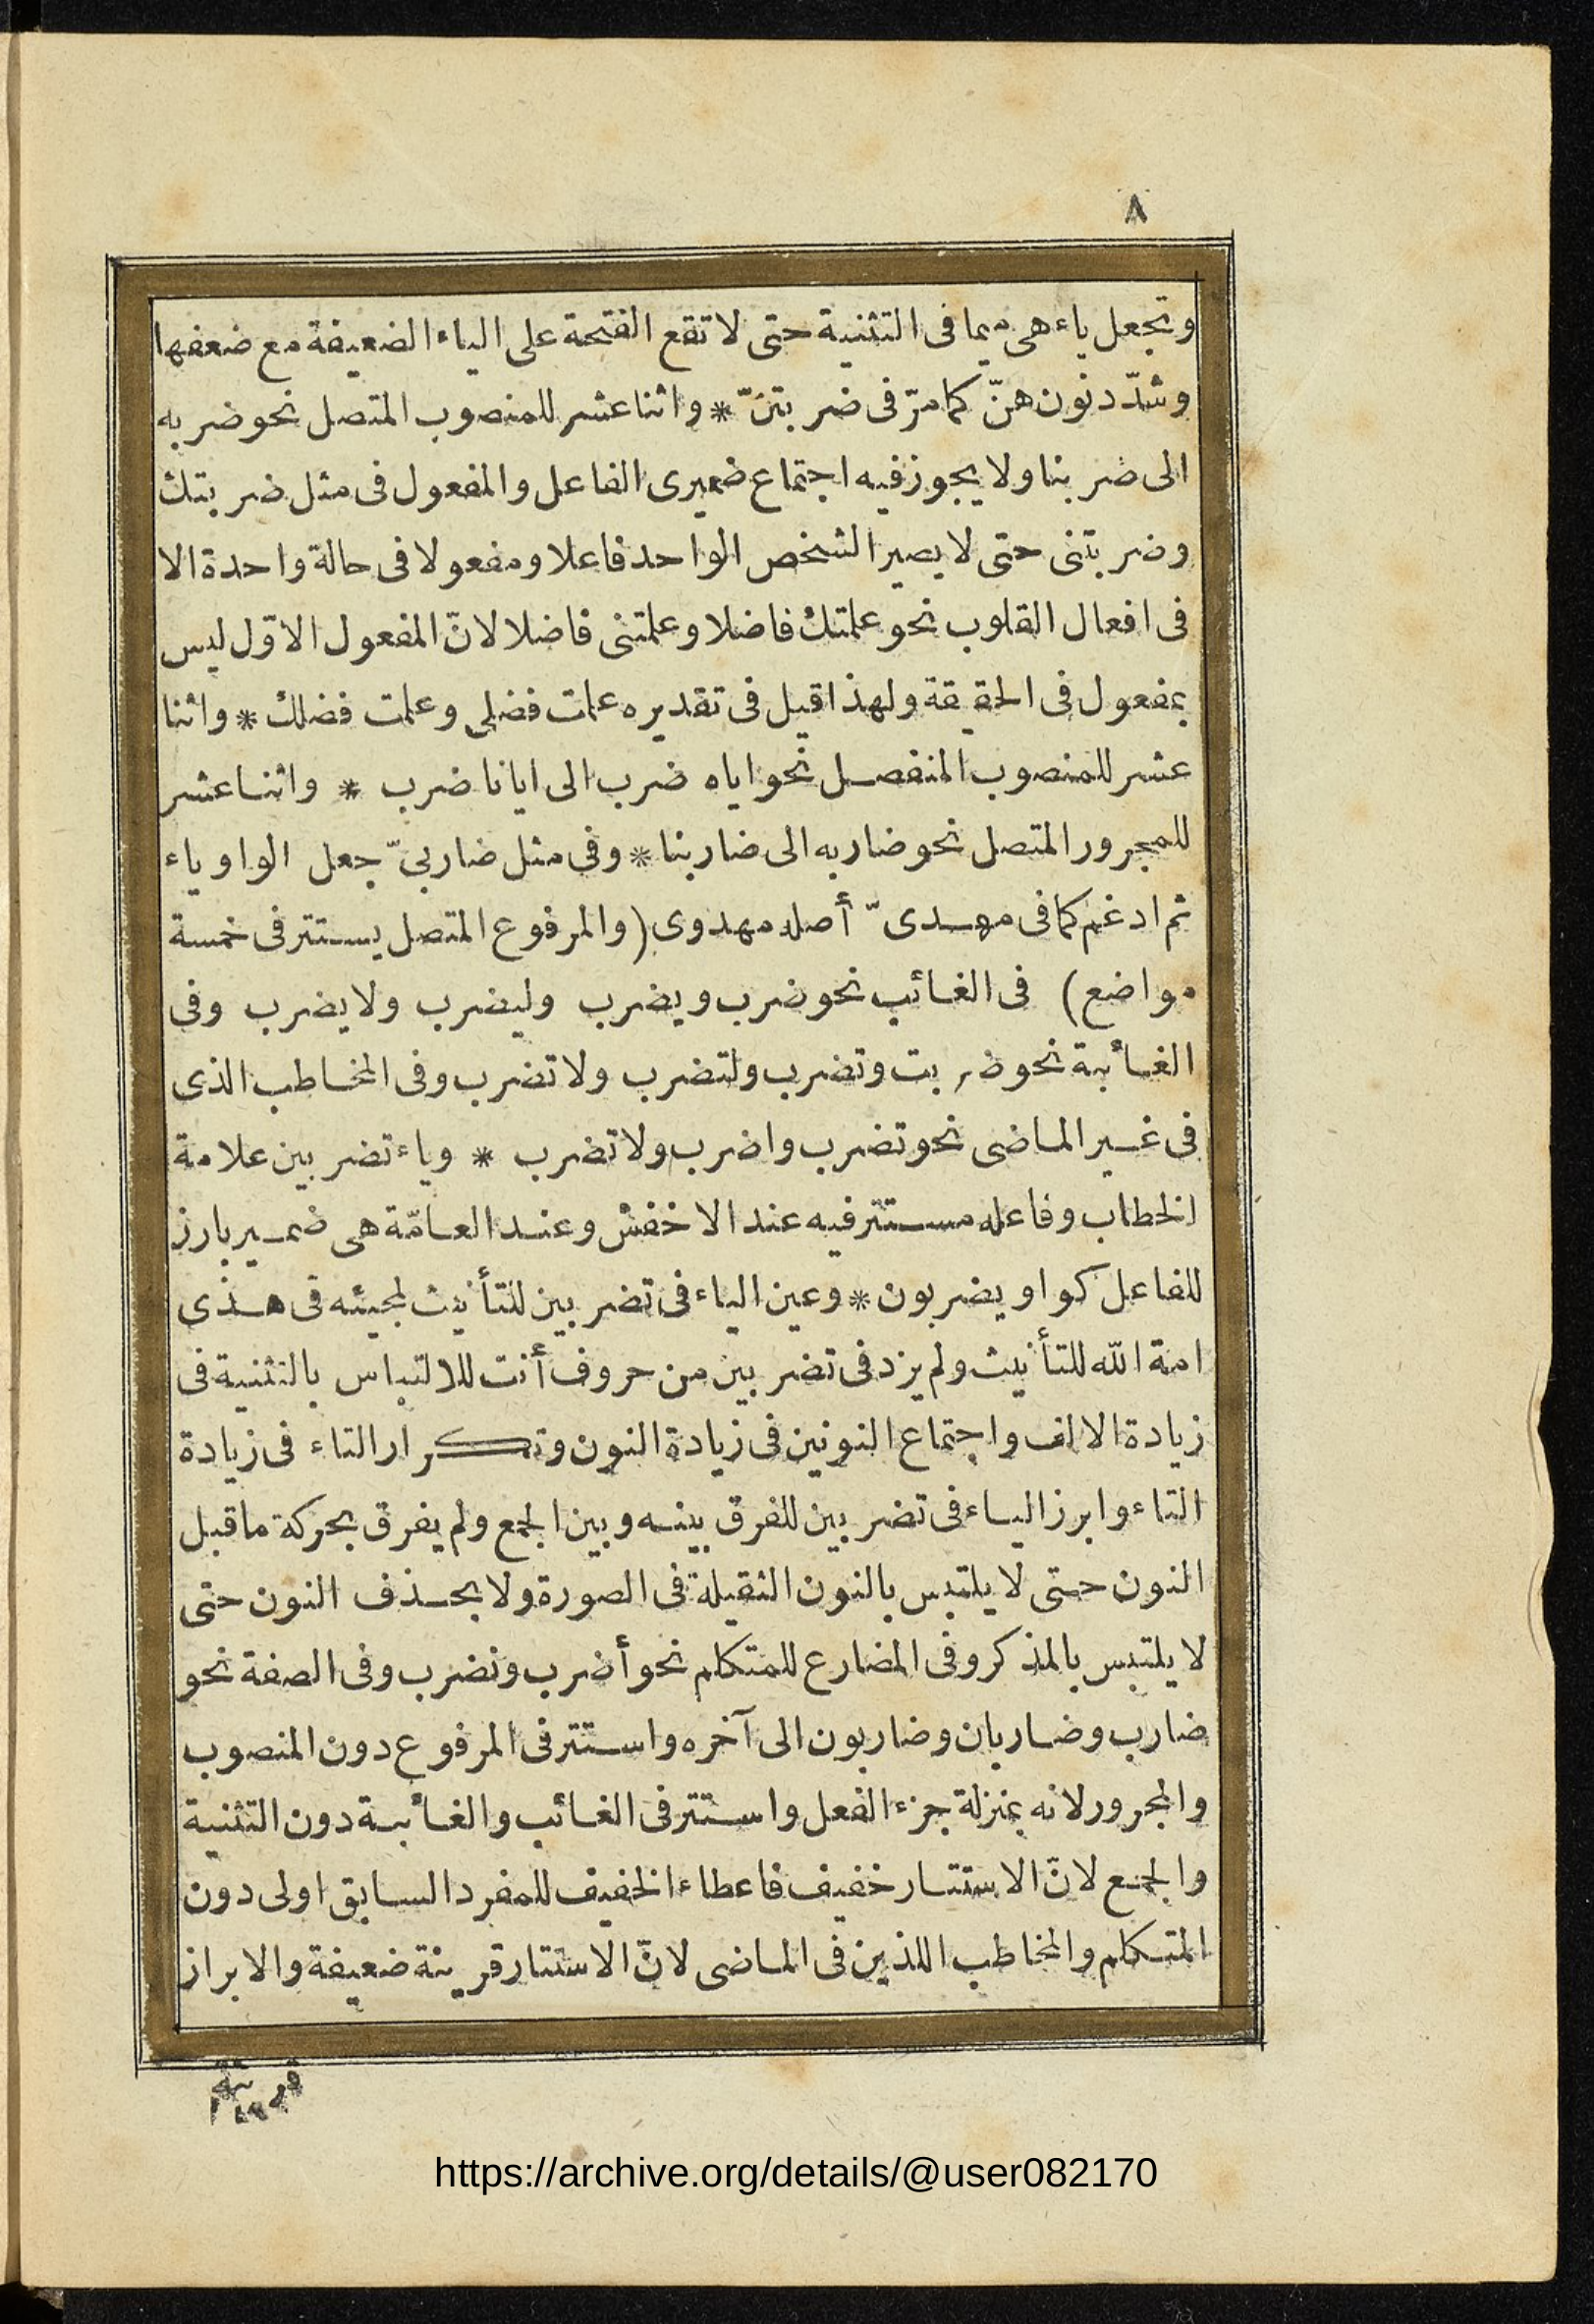 ٨
وتجعل ياء هى ميما فى التثنية حتى لا تقع الفتحة على الياء الضعيفة مع ضعفها
وشدّد نون هنّ كما مرّ فى ضربتنّ * واثنا عشر للمنصوب المتصل نحو ضربه
الى ضربنا ولا يجوز فيه اجتماع ضميرى الفاعل والمفعول فى مثل ضربتك
وضربتنى حتى لا يصير الشخص الواحد فاعلا ومفعولا فى حالة واحدة الا
فى افعال القلوب نحو علمتك فاضلا وعلمتنى فاضلا لانّ المفعول الاوّل ليس
بمفعول فى الحقيقة ولهذا قيل فى تقديره علمت فضلى وعلمت فضلك * واثنا
عشر للمنصوب المنفصل نحو اياه ضرب الى ايانا ضرب * واثنا عشر
للمجرور المتصل نحو ضاربه الى ضاربنا * وفى مثل ضاربىّ جعل الواو ياء
ثم ادغم كما فى مهدىّ أصله مهدوى (والمرفوع المتصل يستتر فى خمسة
مواضع) فى الغائب نحو ضرب ويضرب وليضرب ولا يضرب وفى
الغائبة نحو ضربت وتضرب ولتضرب ولا تضرب وفى المخاطب الذى
فى غير الماضى نحو تضرب واضرب ولا تضرب * وياء تضربين علامة
الخطاب وفاعله مستتر فيه عند الاخفش وعند العامّة هى ضمير بارز
للفاعل كواو يضربون * وعين الياء فى تضربين للتأنيث لمجيئه فى هذى
امة الله للتأنيث ولم يزد فى تضربين من حروف أنت للالتباس بالتثنية فى
زيادة الالف واجتماع النونين فى زيادة النون وتكرار التاء فى زيادة
التاء وابرز الياء فى تضربين للفرق بينه وبين الجمع ولم يفرق بحركة ما قبل
النون حتى لا يلتبس بالنون الثقيلة فى الصورة ولا بحذف النون حتى
لا يلتبس بالمذكر وفى المضارع للمتكلم نحو أضرب ونضرب وفى الصفة نحو
ضارب وضاربان وضاربون الى آخره واستتر فى المرفوع دون المنصوب
والمجرور لانه بمنزلة جزء الفعل واستتر فى الغائب والغائبة دون التثنية
والجمع لانّ الاستتار خفيف فاعطاء الخفيف للمفرد السابق اولى دون
المتكلم والمخاطب اللذين فى الماضى لانّ الاستتار قرينة ضعيفة والابراز
قرينة
https://archive.org/details/@user082170